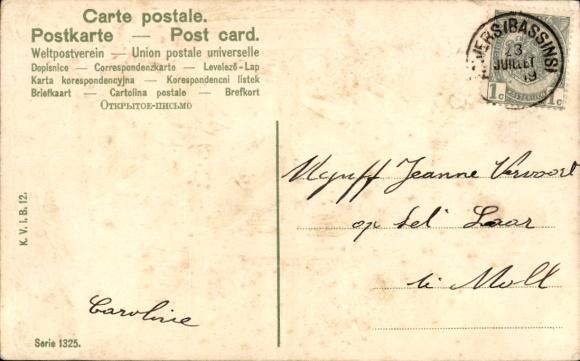 Carte postale.
Postkarte — Post card.
Weltpostverein — Union postale universelle
Dopisnice — Correspondenzkarte — Levelező-Lap
Karta korespondencyjna — Korespondencni listek
Briefkaart — Cartolina postale — Brefkort
Открытое-письмо
(BASSINS)
23
JUILLET
19
1c 1c
Mejuff Jeanne Vervoort
op het Laar
te Moll
Caroline
K. V. i. B. 12.
Serie 1325.